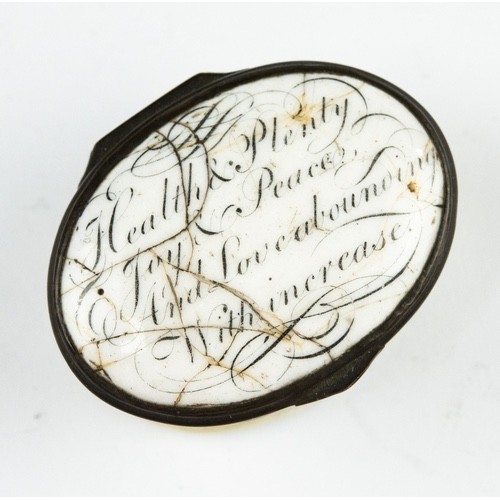 Health & Plenty
Joy & Peace,
And Love abounding
With increase.